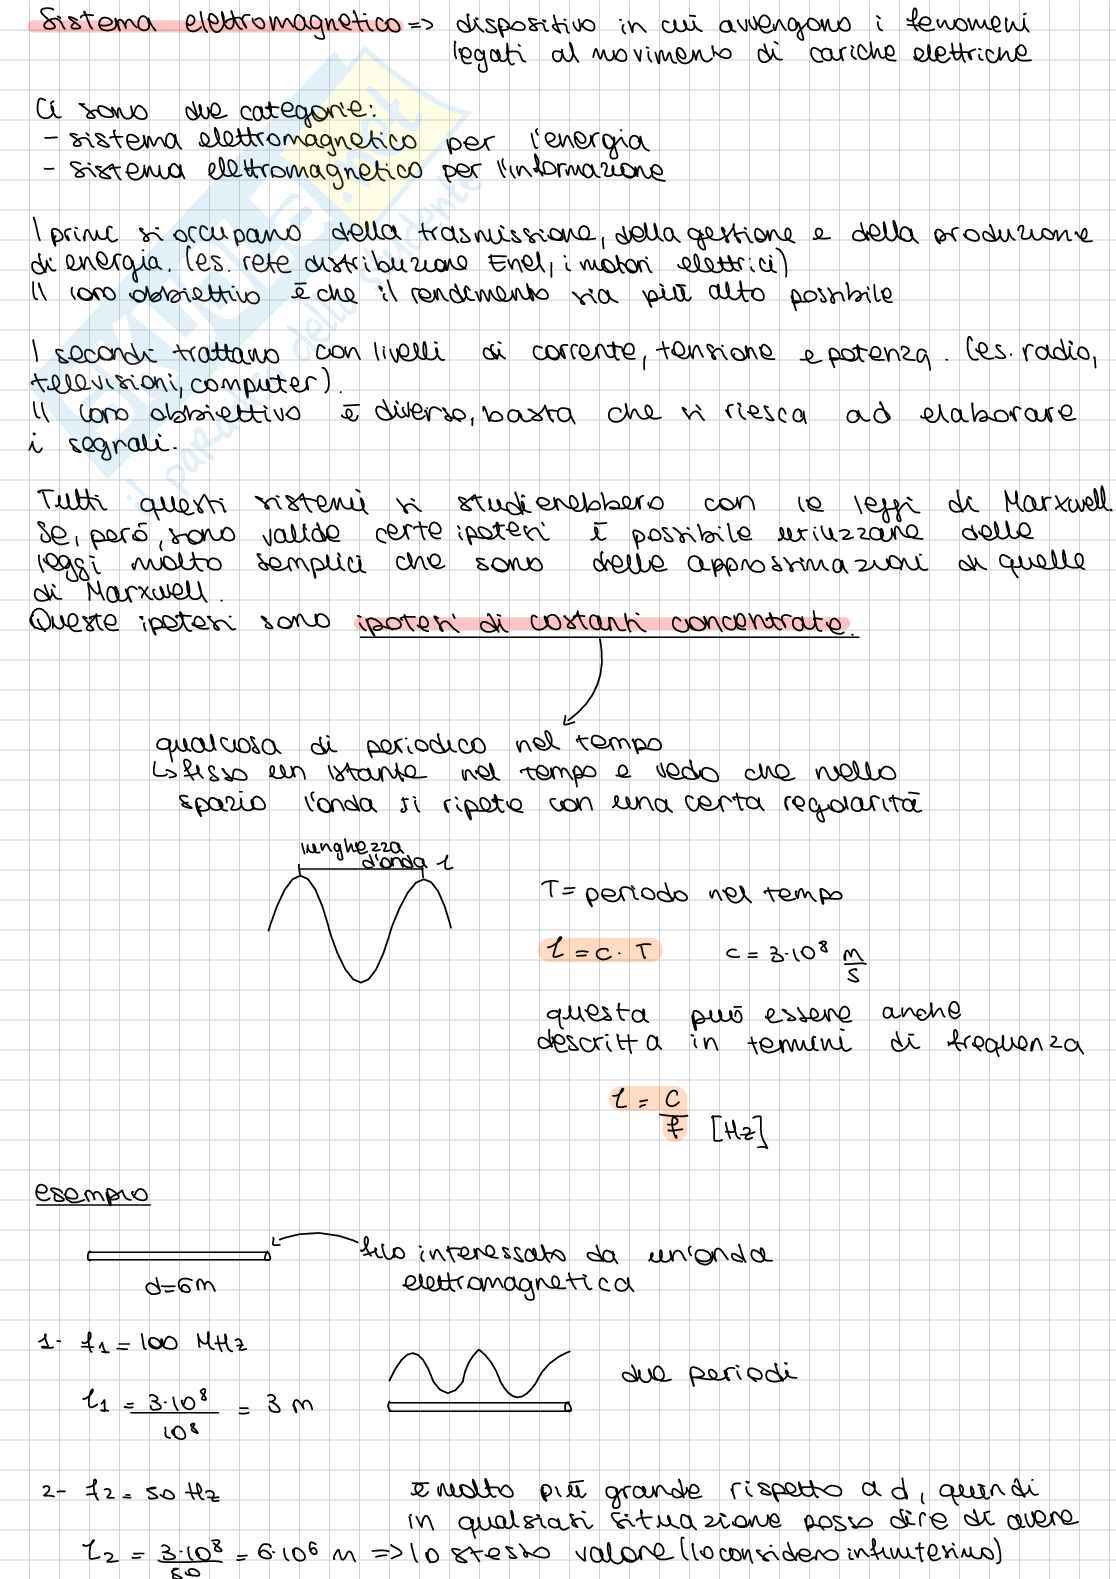 Sistema elettromagnetico => dispositivo in cui avvengono i fenomeni
legati al movimento di cariche elettriche
Ci sono due categorie:
- sistema elettromagnetico per l'energia
- sistema elettromagnetico per l'informazione
I primi si occupano della trasmissione, della gestione e della produzione
di energia. (es. rete distribuzione Enel, i motori elettrici)
Il loro obbiettivo è che il rendimento sia più alto possibile
I secondi trattano con livelli di corrente, tensione e potenza. (es. radio,
televisioni, computer).
Il loro obbiettivo è diverso, basta che si riesca ad elaborare
i segnali.
Tutti questi sistemi si studierebbero con le leggi di Marxwell
Se, però, sono valide certe ipotesi è possibile utilizzare delle
leggi molto semplici che sono delle approssimazioni di quelle
di Marxwell.
Queste ipotesi sono ipotesi di costanti concentrate.
qualcosa di periodico nel tempo
↳ fisso un istante nel tempo e vedo che nello
spazio l'onda si ripete con una certa regolarità
lunghezza
d'onda l
T = periodo nel tempo
l = c · T c = 3·10⁸ m/s
questa può essere anche
descritta in termini di frequenza
l = c/f [Hz]
esempio
filo interessato da un'onda
elettromagnetica
d=6m
1- f₁ = 100 MHz
due periodi
l₁ = 3·10⁸/10⁸ = 3 m
2- f₂ = 50 Hz è molto più grande rispetto a d, quindi
in qualsiasi situazione posso dire di avere
l₂ = 3·10⁸/50 = 6·10⁶ m => lo stesso valore (lo considero infinitesimo)